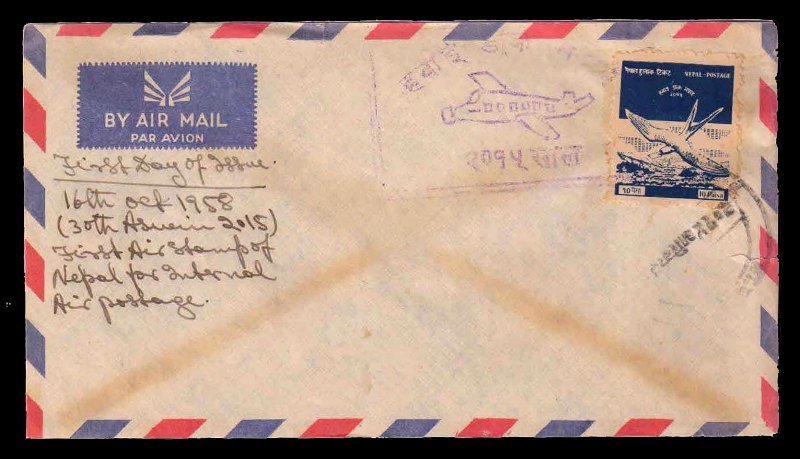 BY AIR MAIL
PAR AVION
First Day of Issue.
16th Oct 1958
(30th Aswin 2015)
First Air Stamp of
Nepal for Internal
Air postage.
हवाई डाक
२०१५ साल
नेपाल हुलाक टिकट NEPAL-POSTAGE
२०१५
10 पैसा